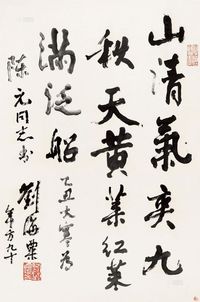 山清氣爽九
秋天黄葉紅葉
滿泛船
乙丑大寒為
陳元同志書
劉海粟
年方九十